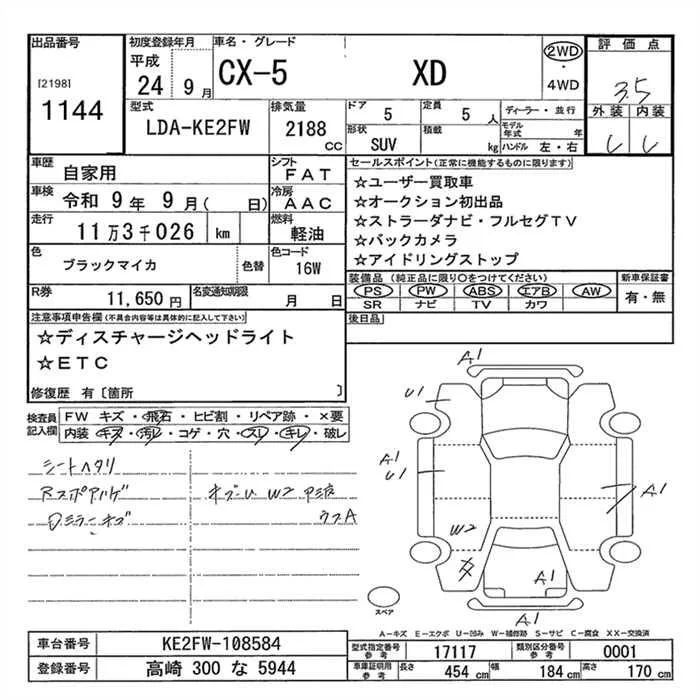 出品番号
[2198]
1144
初度登録年月
平成
24 9月
車名・グレード
CX-5 XD
2WD
・
4WD
評価点
3.5
外装 内装
型式
LDA-KE2FW
排気量
2188
CC
ドア 5
定員 5人
ディーラー・並行
形状 SUV
積載 kg
モデル年式 年
ハンドル 左・右
車歴 自家用
シフト FAT
車検 令和 9年 9月( 日)
冷房 AAC
走行 11万3千026 km
燃料 軽油
色 ブラックマイカ 色替
色コード 16W
R券 11,650円
名変通知期限 月 日
セールスポイント(正常に機能するものに限ります)
☆ユーザー買取車
☆オークション初出品
☆ストラーダナビ・フルセグTV
☆バックカメラ
☆アイドリングストップ
装備品(純正品に限り○をつけてください)
PS PW ABS エアB AW
SR ナビ TV カワ
新車保証書
有・無
後日品
注意事項申告欄(不具合内容等は具体的に記入して下さい)
☆ディスチャージヘッドライト
☆ETC
修復歴 有〔箇所 〕
検査員記入欄
FW キズ・飛石・ヒビ割・リペア跡・×要
内装 キズ・汚レ・コゲ・穴・スレ・キレ・破レ
シートヘタリ
Rスポアハゲ
Dミラーキズ
A1
U1
A1
U1
A1
W2
A1
A1
スペア
A−キズ E−エクボ U−凹み W−補修跡 S−サビ C−腐食 XX−交換済
車台番号 KE2FW-108584
登録番号 高崎 300 な 5944
型式指定番号 参考 17117
類別区分番号 参考 0001
車庫証明用 参考 長さ 454 cm 幅 184 cm 高さ 170 cm